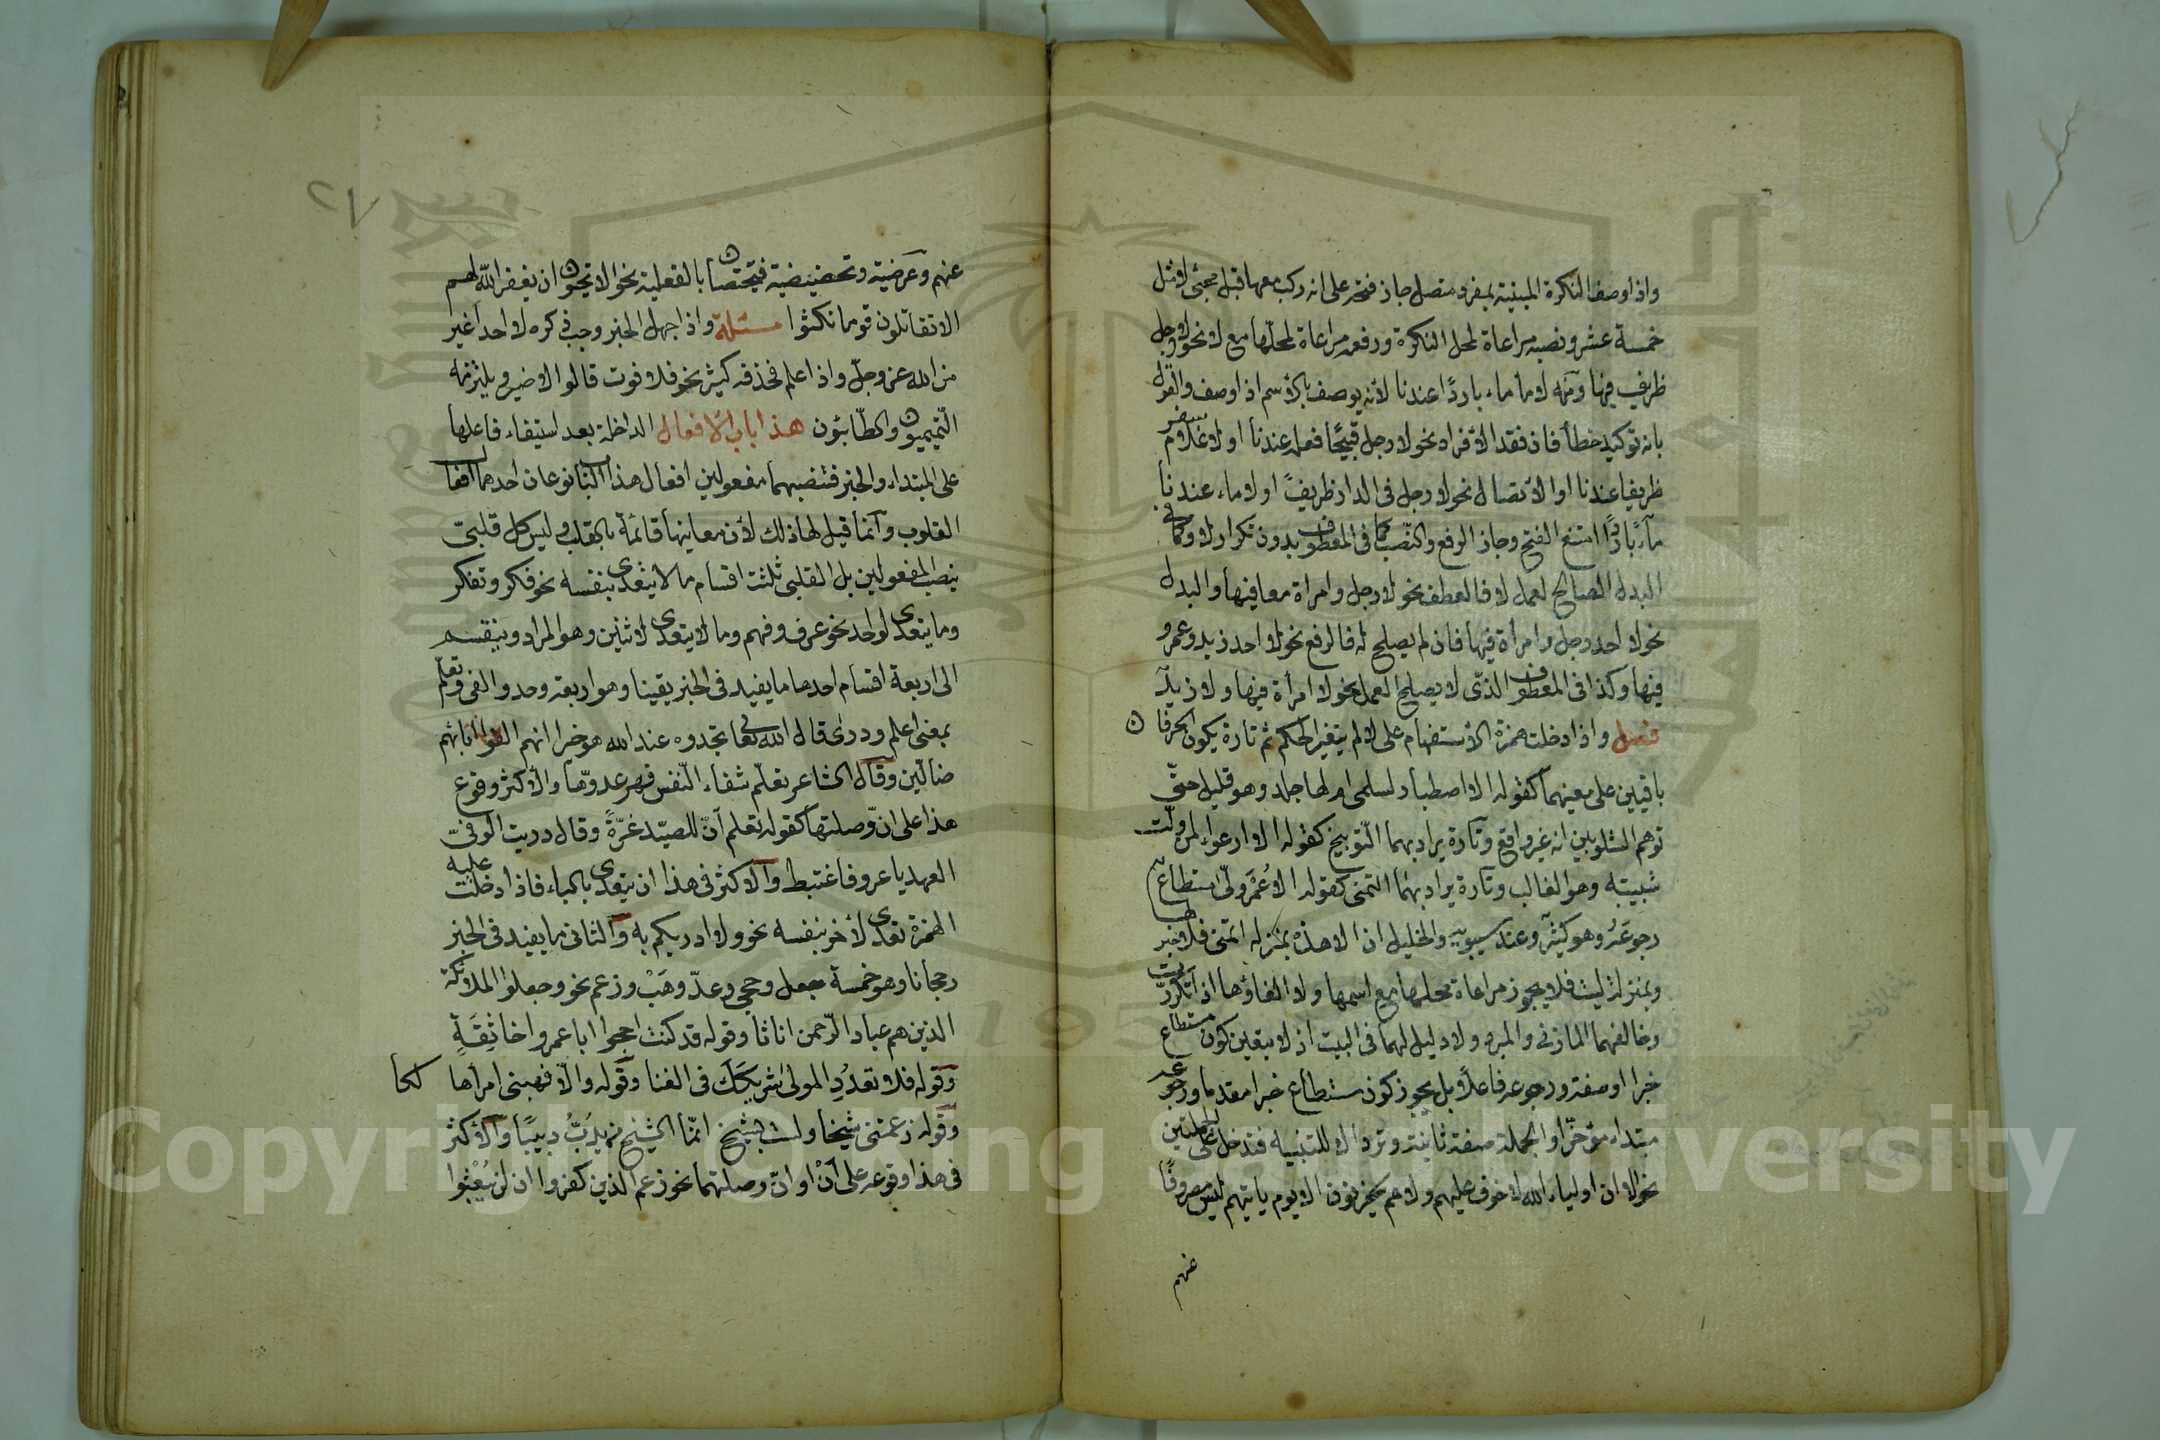 واذا وصف النكرة المبنية بمفرد متصل جاز فتحه على انه ركب معها قبل مجئ لا مثل
خمسة عشر ونصبه مراعاة لمحل النكرة ورفعه مراعاة لمحلها مع لا نحو لا رجل
ظريف فيها ومنه لا ماء ماء باردًا عندنا لانه يوصف بالاسم اذا وصف والقول
بانه توكيد خطأ فان فقد الافراد نحو لا رجل قبيحًا فعله عندنا او لا غلام سفر
ظريفا عندنا او الاتصال نحو لا رجل فى الدار ظريف او لا ماء عندنا
ماءً باردًا امتنع الفتح وجاز الرفع والنصب كما فى المعطوف بدون تكرار لا وكما فى
البدل الصالح لعمل لا فالعطف نحو لا رجل وامرأة معا فيها والبدل
نحو لا احد رجل وامرأة فيها فان لم يصلح له فالرفع نحو لا احد زيد وعمرو
فيها وكذا فى المعطوف الذى لا يصلح لعمل نحو لا امرأة فيها ولا زيد
فصل واذا دخلت همزة الاستفهام على لا لم يتغير الحكم ثم تارة يكون الحرفان
باقيين على معنيهما كقوله الا اصطبار لسلمى ام لها جلد وهو قليل حتى
توهم الشلوبين انه غير واقع وتارة يراد بهما التوبيخ كقوله الا ارعواء لمن ولت
شبيبته وهو الغالب وتارة يراد بهما التمنى كقوله الا عُمْرَ ولّى مستطاع
رجوعَهُ وهو كثير وعند سيبويه والخليل ان الا هذه بمنزلة اتمنى فلا خبر لها
وبمنزلة ليت فلا يجوز مراعاة محلها مع اسمها ولا الغاؤها اذا تكررت
وخالفهما المازنى والمبرد ولا دليل لهما فى البيت اذ لا يتعين كون مستطاع
خبرا او صفة ورجوعه فاعلاً بل يجوز كون مستطاع خبرا مقدما ورجوعه
مبتداء مؤخرًا والجملة صفة ثانية وترد الا للتنبيه فتدخل على الجملتين
نحو الا ان اولياء الله لا خوف عليهم ولا هم يحزنون الا يوم يأتيهم ليس مصروفًا
عنهم
٢٧
عنهم وعرضية وتحضيضية فيختصان بالفعلية نحو الا تحبون ان يغفر الله لهم
الا تقاتلون قوما نكثوا مسئلة واذا جهل الخبر وجب ذكره لا احد اغير
من الله عز وجلّ واذا علم فحذفه كثير نحو فلا فوت قالوا لا ضير ويلتزمه
التميميون والطائيون هذا باب الافعال الداخلة بعد استيفاء فاعلها
على المبتداء والخبر فتنصبهما مفعولين افعال هذا الباب نوعان احدهما افعال
القلوب وانما قيل لها ذلك لان معانيها قائمة بالقلب وليس كل قلبىّ
ينصب المفعولين بل القلبى ثلثة اقسام ما لا يتعدى بنفسه نحو فكر وتفكر
وما يتعدى لواحد نحو عرف وفهم وما لا يتعدى لاثنين وهو المراد وينقسم
الى اربعة اقسام احدها ما يفيد فى الخبر يقينا وهو اربعة وجد والفى وتعلّم
بمعنى اعلم ودرى قال الله تعالى تجدوه عند الله هو خيرا انهم الفوا اباءهم
ضالّين وقال الشاعر تعلّم شفاء النفس قهر عدوّها والاكثر وقوع
هذا على انّ وصلتها كقوله تعلم انّ للصيد غرّةً وقال دريت الوفىّ
العهد يا عرو فاغتبط والاكثر فى هذا ان يتعدى بالباء فاذا دخلت عليه
الهمزة تعدى لآخر بنفسه نحو ولا ادريكم به والثانى ما يفيد فى الخبر
رجحانا وهو خمسة جعل وحجى وعدّ وهَبْ وزعم نحو وجعلوا الملائكة
الذين هم عباد الرّحمن اناثا وقوله قد كنت احجوا ابا عمرو اخا ثِقَةٍ
وقوله فلا تعدُدِ المولى شريكَكَ فى الغنا وقوله والّا فهبنى امرأ هالكا
وقوله زعمتنى شيخا ولست بشيخ انمّا الشيخ من يَدِبُّ دبيبًا والاكثر
فى هذا وقوعه على أَنْ او انّ وصلتهما نحو زعم الذين كفروا ان لن يُبعثوا
Copyright © King Saud University